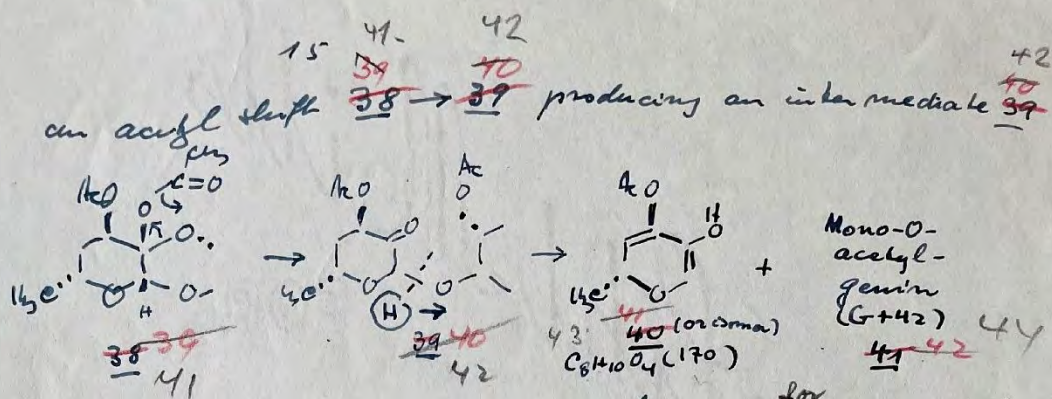 15 41. 42 42
39 40 40
an acyl shift 38 → 39 producing an intermediate 39
CH3
AcO O C=O O
H3C O H O
38 39
41
→
AcO O Ac O
H3C O O
H →
39 40
42
→
AcO H O
H3C O
41
43 40 (or isomer)
C8H10O4 (170)
+
Mono-O-
acetyl-
genin
(G+42)
41 42 44
for